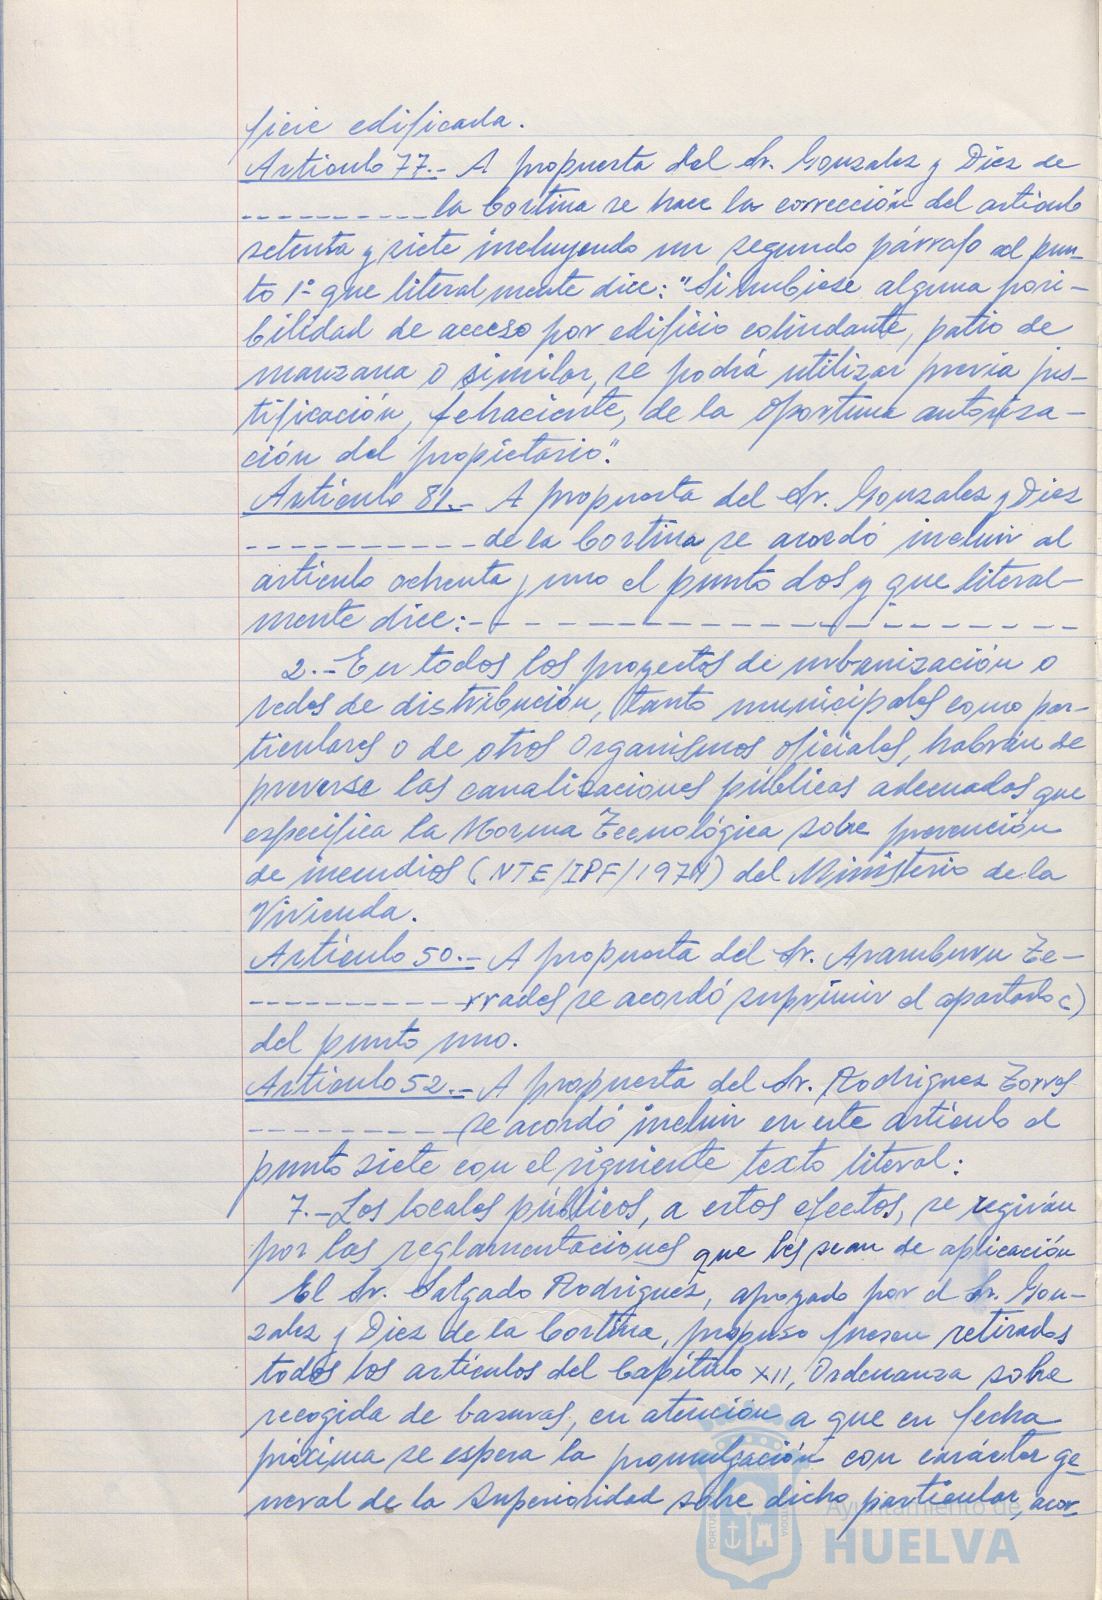 ficie edificada.
Articulo 77.- A propuesta del Sr. Gonzalez y Diez de
---------- la Cortina se hace la corrección del articulo
setenta y siete incluyendo un segundo párrafo al pun-
to 1º que literalmente dice: "Si hubiese alguna posi-
bilidad de acceso por edificio colindante, patio de
manzana o similar, se podrá utilizar previa jus-
tificación, fehaciente, de la oportuna autoriza-
ción del propietario".
Artículo 81.- A propuesta del Sr. Gonzalez y Diez
---------- de la Cortina se acordó incluir al
artículo ochenta y uno el punto dos y que literal-
mente dice:- - - - - - - - - - - - - - - - - -
2.- En todos los proyectos de urbanización o
redes de distribución, tanto municipales como par-
ticulares o de otros Organismos oficiales, habrán de
preverse las canalizaciones públicas adecuadas que
especifica la Norma Tecnológica sobre prevención
de incendios (NTE/IPF/1974) del Ministerio de la
Vivienda.
Artículo 50.- A propuesta del Sr. Aramburu Te-
---------- rrades se acordó suprimir el apartado c)
del punto uno.
Artículo 52.- A propuesta del Sr. Rodriguez Torres
---------- se acordó incluir en este artículo el
punto siete con el siguiente texto literal:
7.- Los locales públicos, a estos efectos, se regirán
por las reglamentaciones que les sean de aplicación
El Sr. Salgado Rodriguez, apoyado por el Sr. Gon-
zalez y Diez de la Cortina, propuso fuesen retirados
todos los artículos del Capítulo XII, Ordenanza sobre
recogida de basuras, en atención a que en fecha
próxima se espera la promulgación con carácter ge-
neral de la Superioridad sobre dicho particular, acor-
Ayuntamiento de
HUELVA